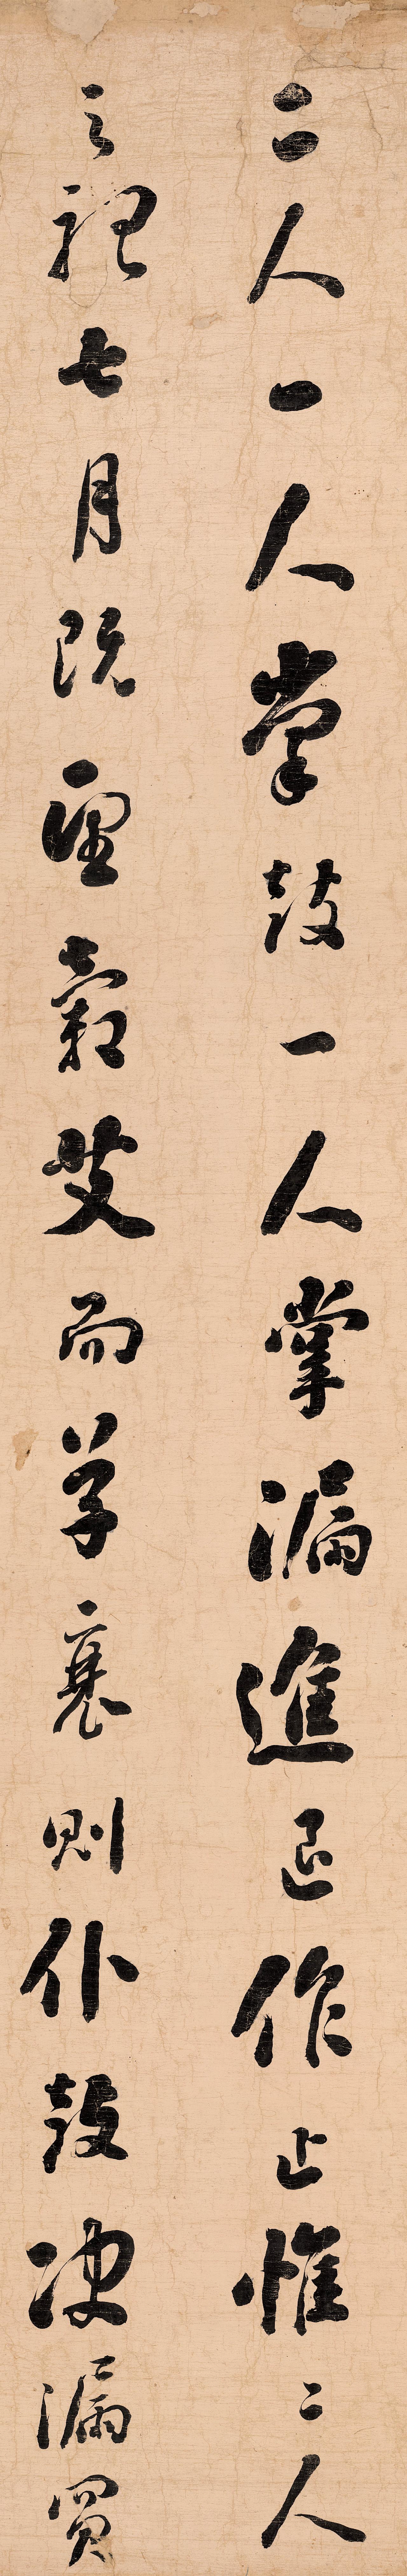 二人一人掌鼓一人掌漏進退作止惟二人
之聽七月既望穀艾而草衰則仆鼓決漏買